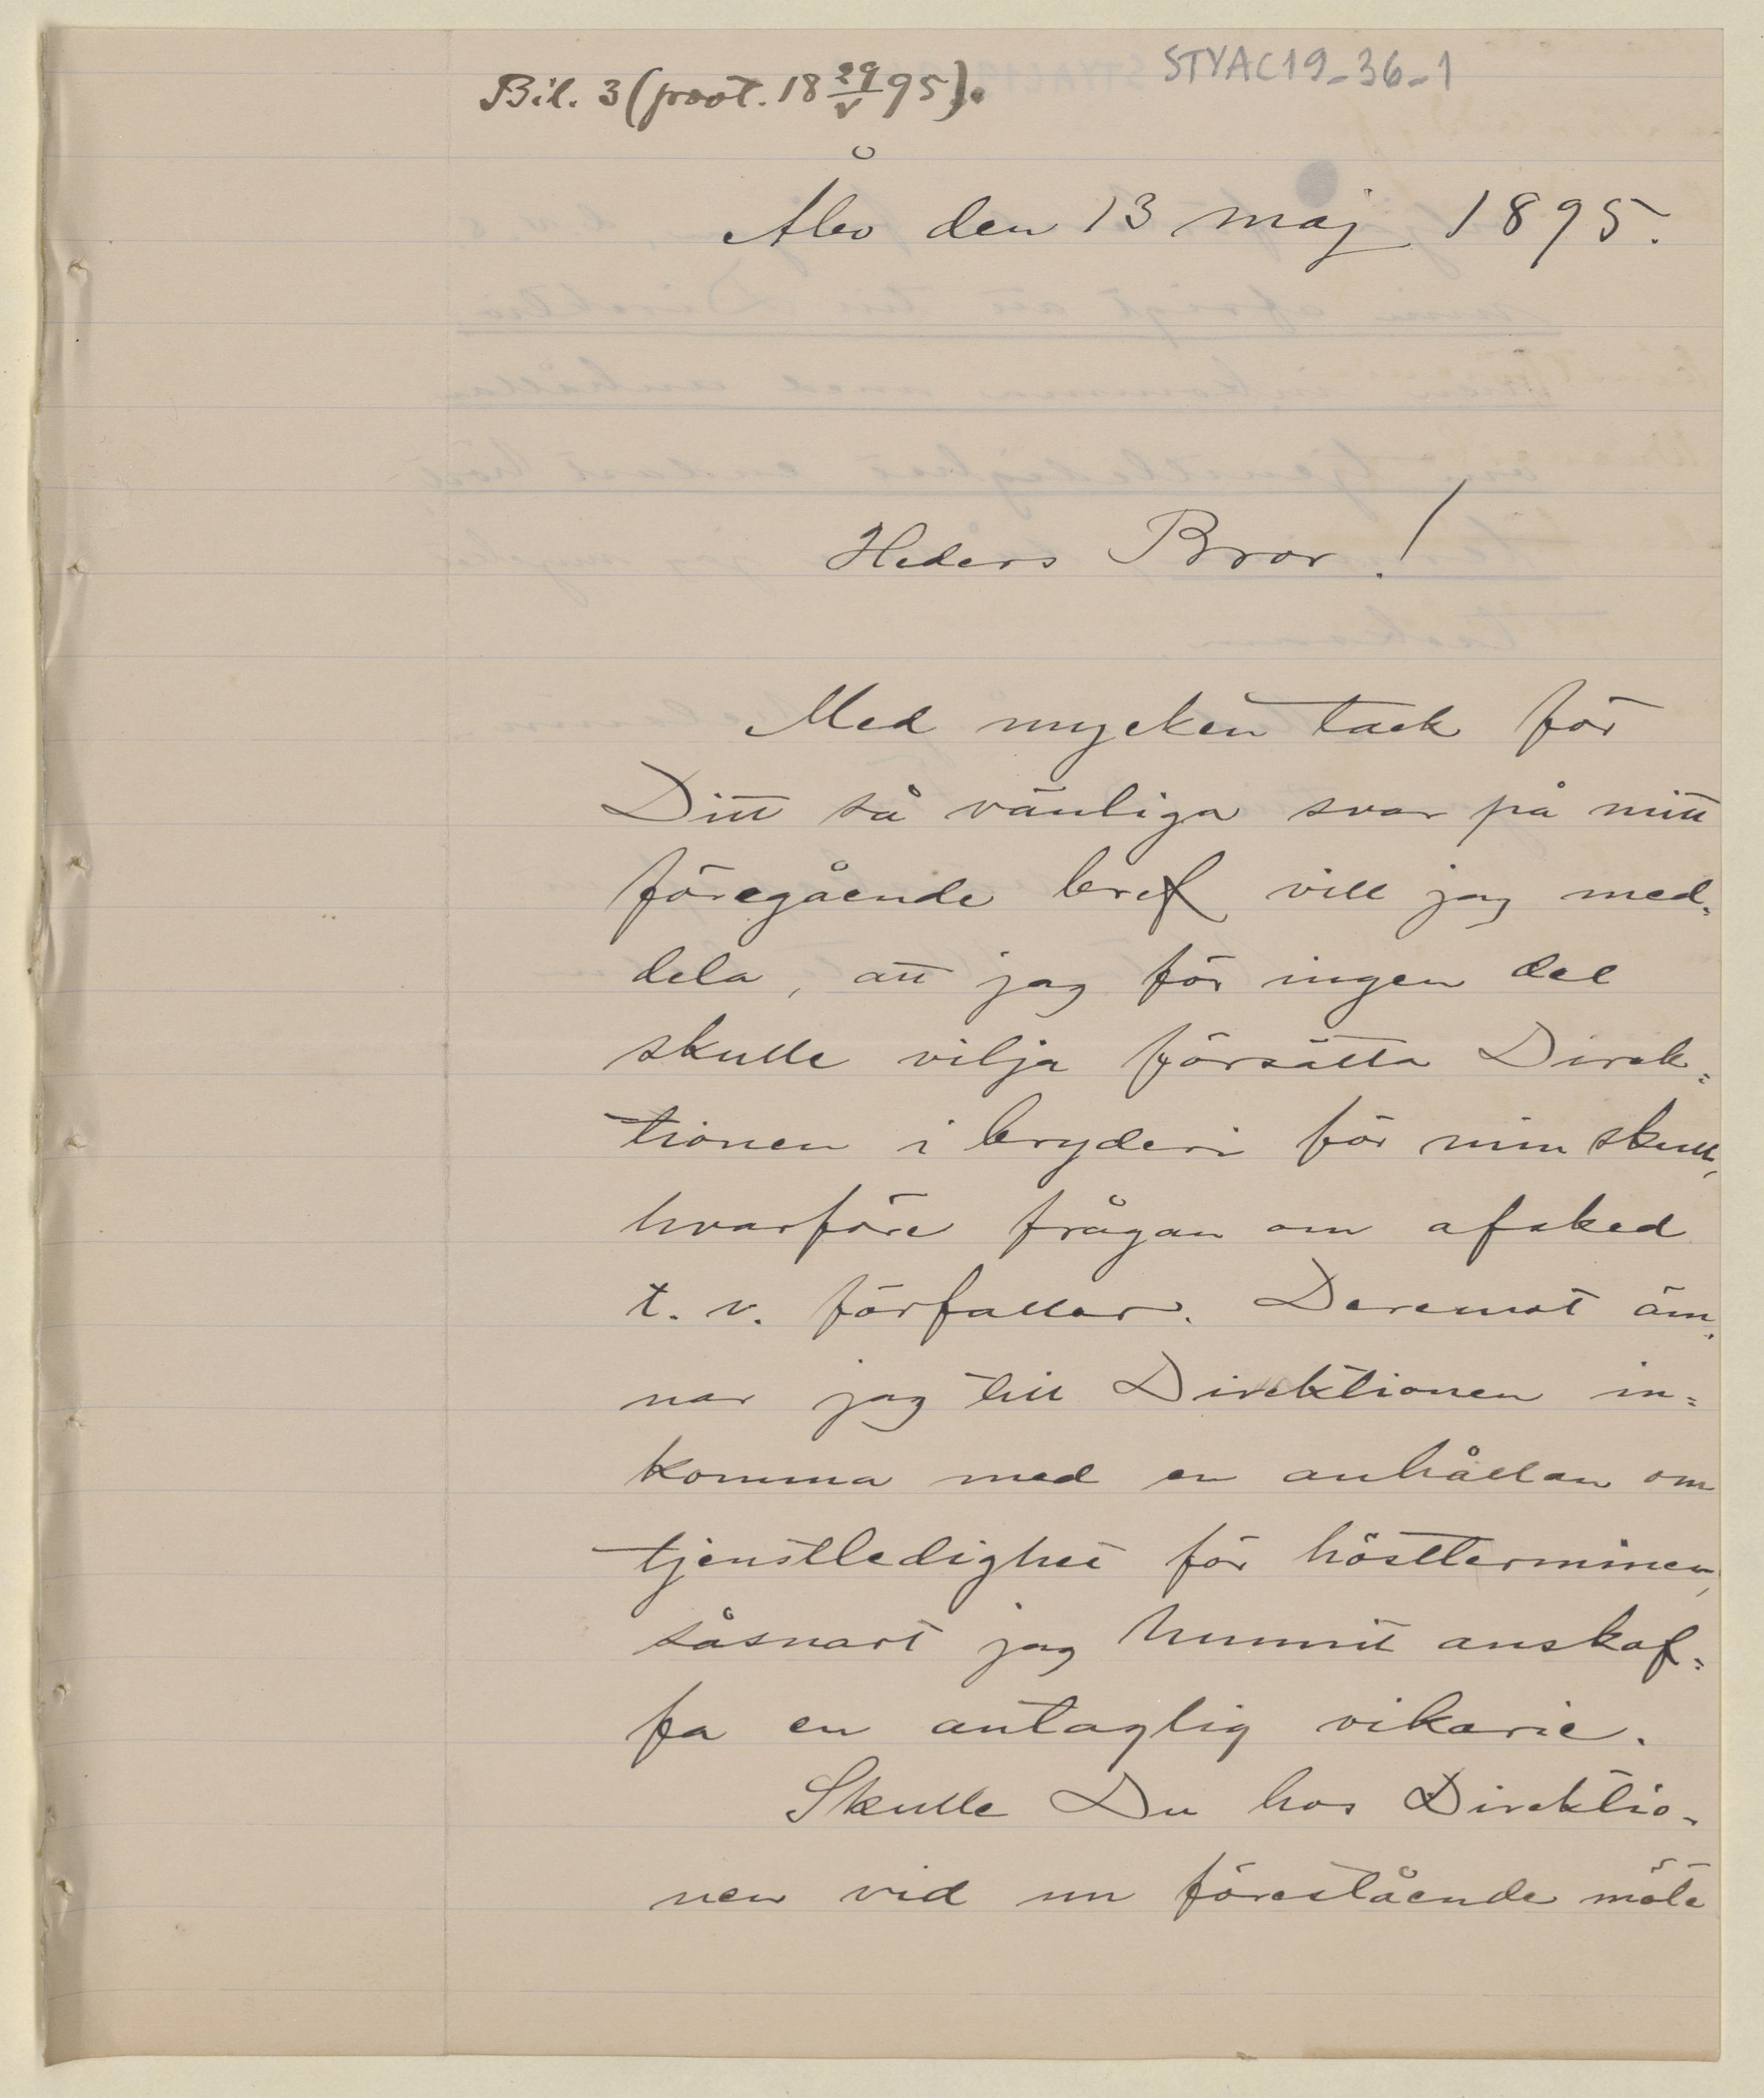 STYAC19-36-1
Bil. 3 (prot. 18 29/V 95).
Åbo den 13 maj 1895.
Heders Bror!
Med mycken tack för
Ditt så vänliga svar på mitt
föregående bref vill jag med=
dela, att jag för ingen del
skulle vilja försätta Direk=
tionen i bryderi för min skull,
hvarföre frågan om afsked
t. v. förfaller. Deremot äm=
nar jag till Direktionen in=
komma med en anhållan om
tjenstledighet för höstterminen,
såsnart jag hunnit anskaf=
fa en antaglig vikarie.
Skulle Du hos Direktio-
nen vid nu förestående möte